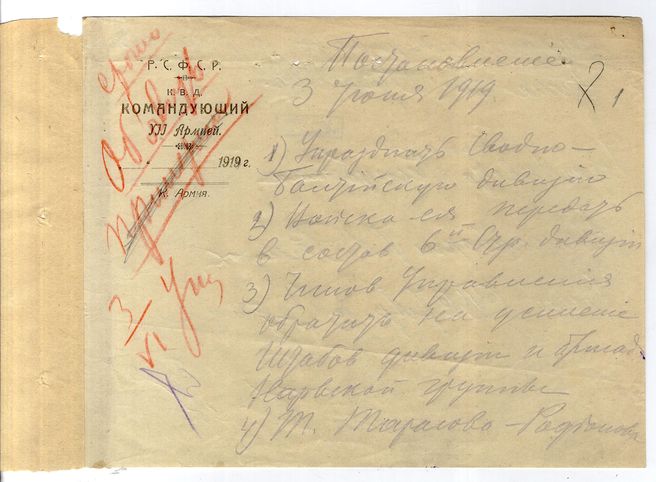 Р. С. Ф. С. Р.
К. В. Д.
КОМАНДУЮЩИЙ
XII Армией.
1919 г.
К. Армия.
срочно
3/VI
Постановление
3 июня 1919
1
1) Упразднить Сводно-
Балтийскую дивизию
2) Войска ея передать
в состав 6ой Стр. дивизии
3) Чинов Управления
обратить на усиление
Штабов дивизии и бригад
Нарвской группы
4) Т. Тарасова-Родионова